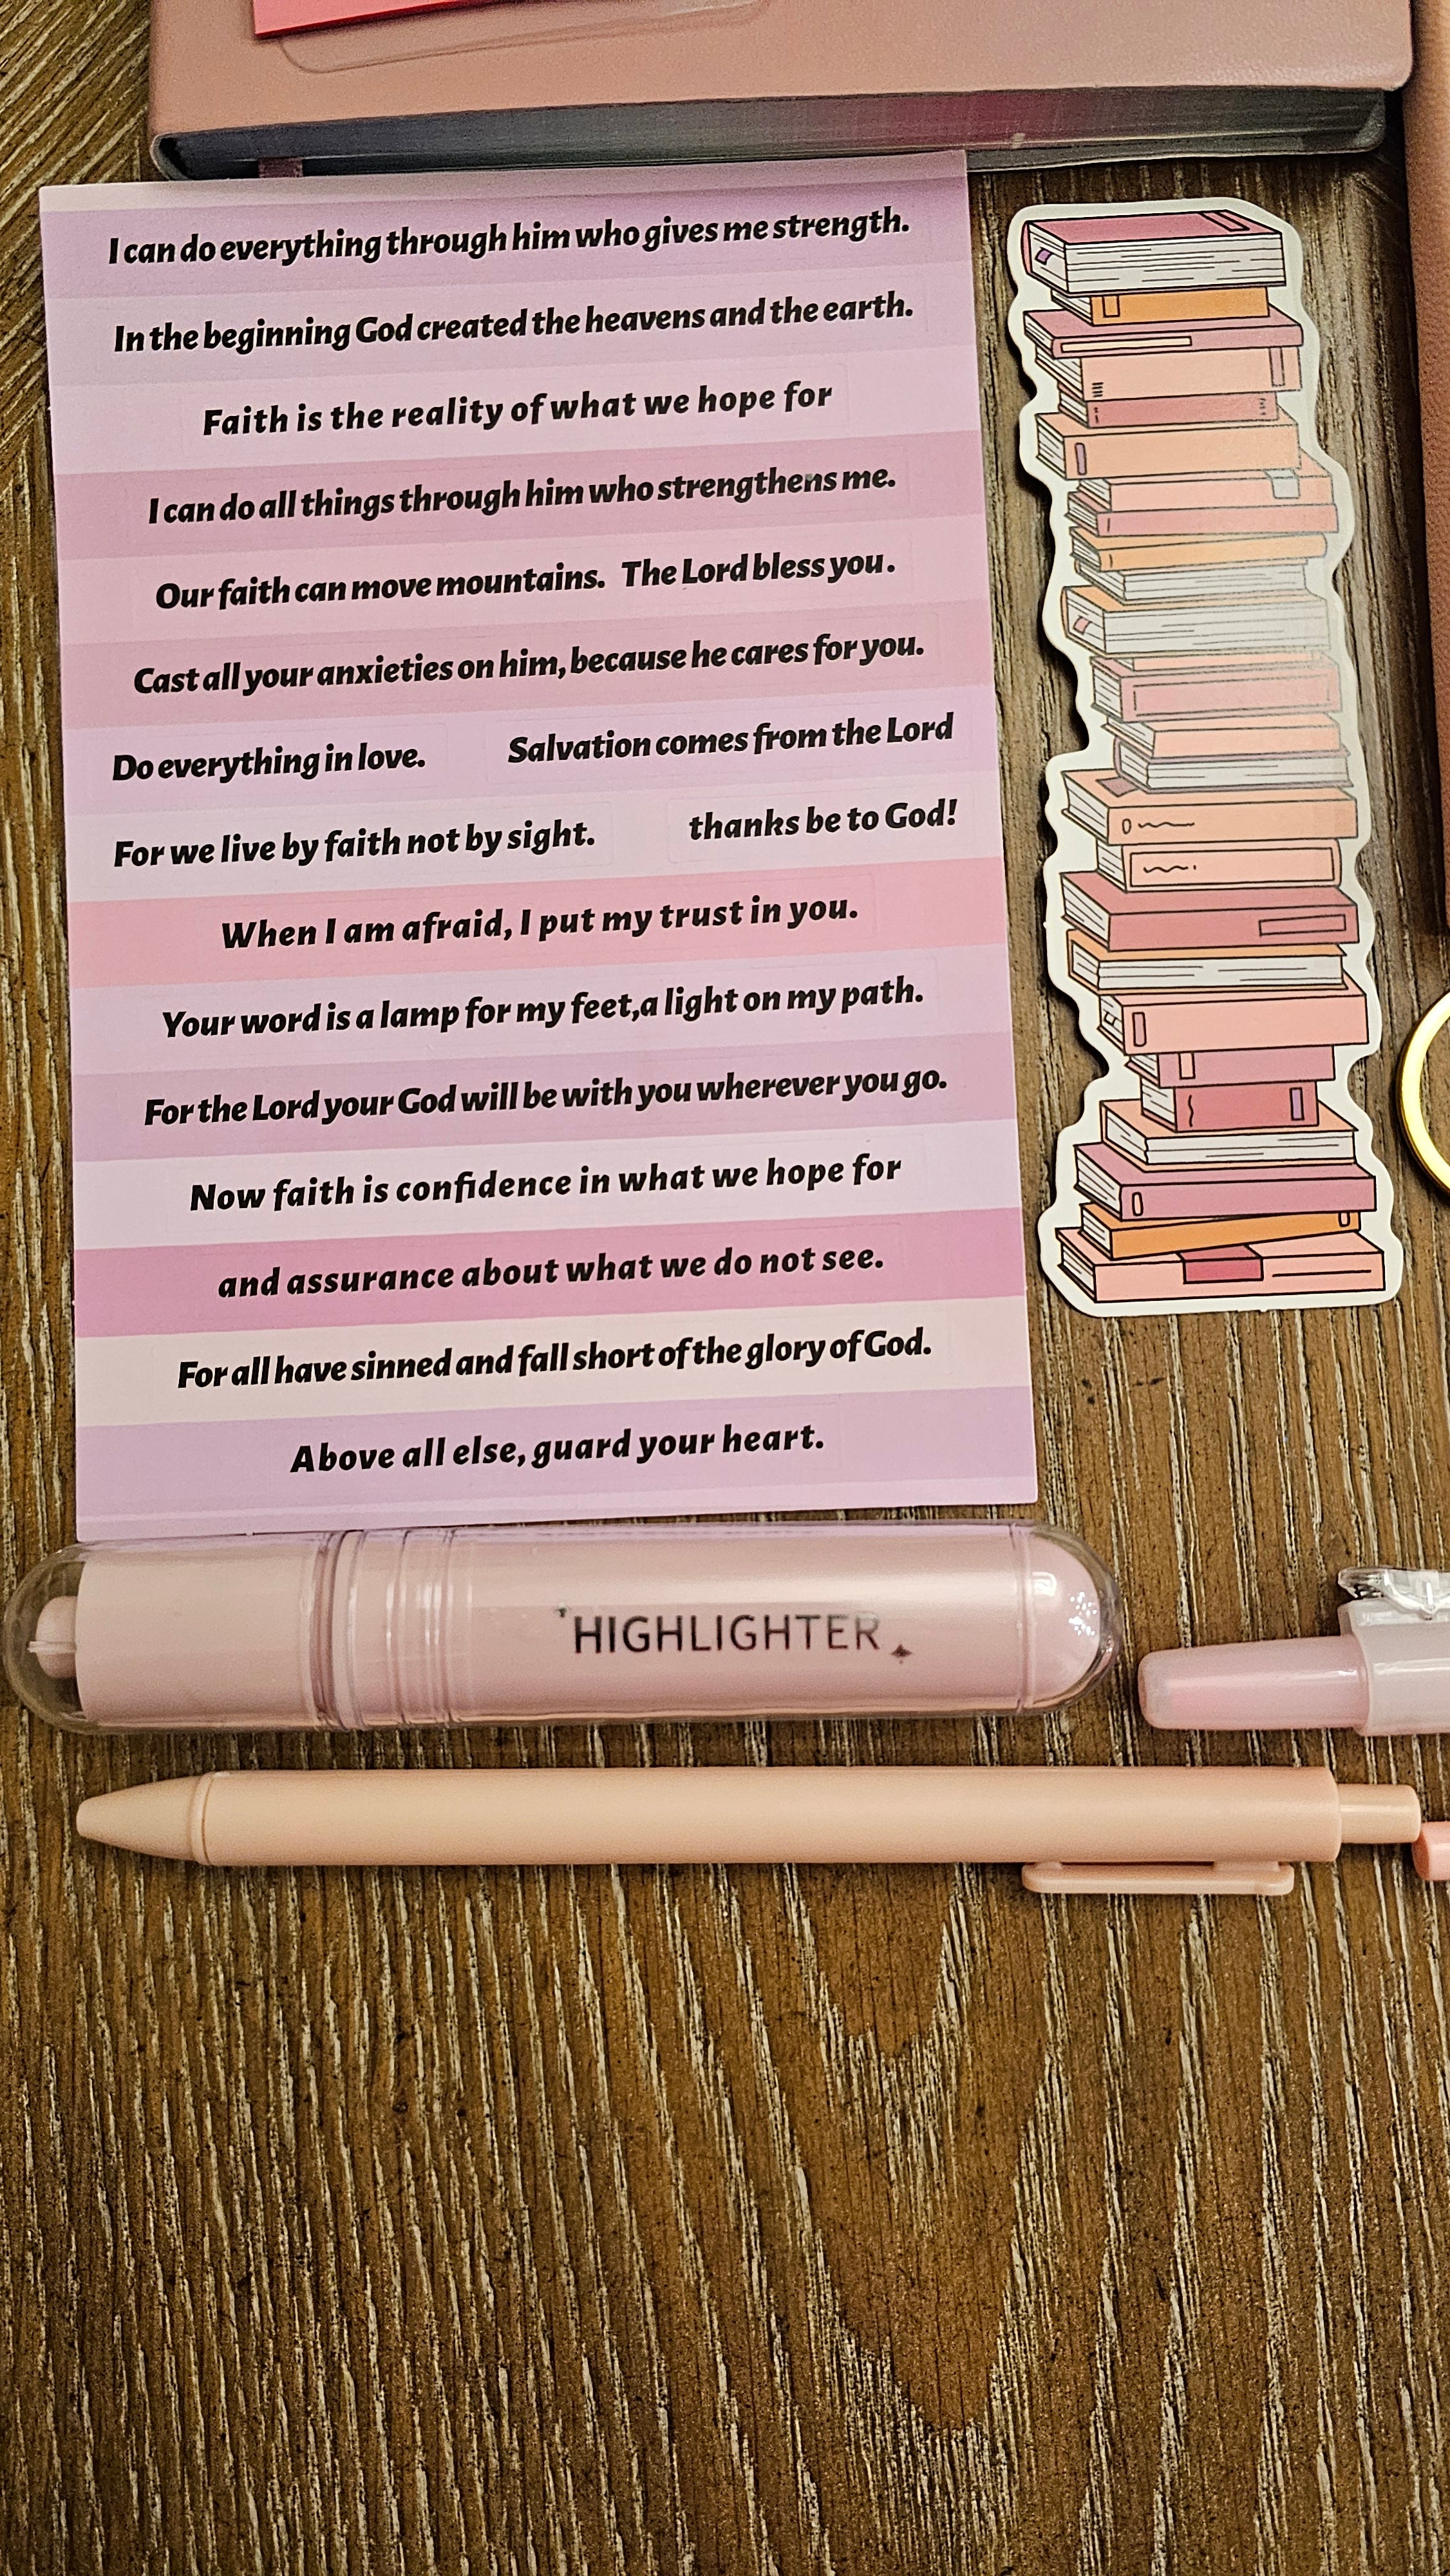 I can do everything through him who gives me strength.
In the beginning God created the heavens and the earth.
Faith is the reality of what we hope for
I can do all things through him who strengthens me.
Our faith can move mountains. The Lord bless you.
Cast all your anxieties on him, because he cares for you.
Do everything in love. Salvation comes from the Lord
For we live by faith not by sight. thanks be to God!
When I am afraid, I put my trust in you.
Your word is a lamp for my feet,a light on my path.
For the Lord your God will be with you wherever you go.
Now faith is confidence in what we hope for
and assurance about what we do not see.
For all have sinned and fall short of the glory of God.
Above all else, guard your heart.
HIGHLIGHTER